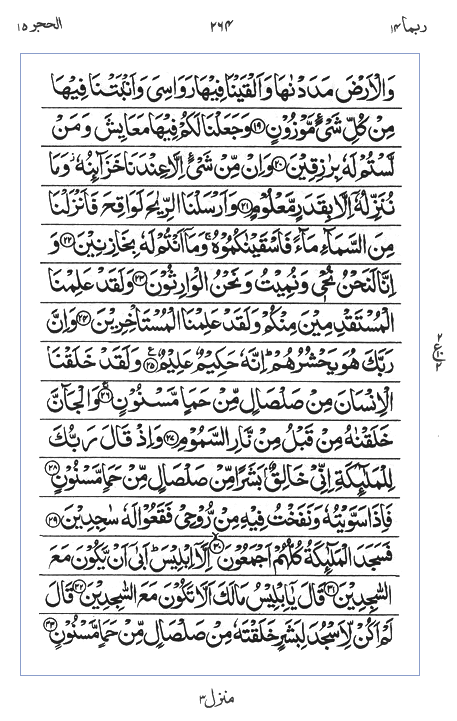 ربما ١٤ ٢٦٤ الحجر ١٥
وَالْاَرْضَ مَدَدْنٰهَا وَاَلْقَيْنَا فِيْهَا رَوَاسِىَ وَاَنْۢبَتْنَا فِيْهَا
مِنْ كُلِّ شَىْءٍ مَّوْزُوْنٍ ﴿١٩﴾ وَجَعَلْنَا لَكُمْ فِيْهَا مَعَايِشَ وَمَنْ
لَّسْتُمْ لَهٗ بِرٰزِقِيْنَ ﴿٢٠﴾ وَاِنْ مِّنْ شَىْءٍ اِلَّا عِنْدَنَا خَزَآئِنُهٗ وَمَا
نُنَزِّلُهٗٓ اِلَّا بِقَدَرٍ مَّعْلُوْمٍ ﴿٢١﴾ وَاَرْسَلْنَا الرِّيٰحَ لَوَاقِحَ فَاَنْزَلْنَا
مِنَ السَّمَآءِ مَآءً فَاَسْقَيْنٰكُمُوْهُ وَمَآ اَنْتُمْ لَهٗ بِخَازِنِيْنَ ﴿٢٢﴾ وَ
اِنَّا لَنَحْنُ نُحْىٖ وَنُمِيْتُ وَنَحْنُ الْوَارِثُوْنَ ﴿٢٣﴾ وَلَقَدْ عَلِمْنَا
الْمُسْتَقْدِمِيْنَ مِنْكُمْ وَلَقَدْ عَلِمْنَا الْمُسْتَاْخِرِيْنَ ﴿٢٤﴾ وَاِنَّ
رَبَّكَ هُوَ يَحْشُرُهُمْ ؕ اِنَّهٗ حَكِيْمٌ عَلِيْمٌ ﴿٢٥﴾ ع وَلَقَدْ خَلَقْنَا
الْاِنْسَانَ مِنْ صَلْصَالٍ مِّنْ حَمَاٍ مَّسْنُوْنٍ ﴿٢٦﴾ وَالْجَآنَّ
خَلَقْنٰهُ مِنْ قَبْلُ مِنْ نَّارِ السَّمُوْمِ ﴿٢٧﴾ وَاِذْ قَالَ رَبُّكَ
لِلْمَلٰٓئِكَةِ اِنِّىْ خَالِقٌۢ بَشَرًا مِّنْ صَلْصَالٍ مِّنْ حَمَاٍ مَّسْنُوْنٍ ﴿٢٨﴾
فَاِذَا سَوَّيْتُهٗ وَنَفَخْتُ فِيْهِ مِنْ رُّوْحِىْ فَقَعُوْا لَهٗ سٰجِدِيْنَ ﴿٢٩﴾
فَسَجَدَ الْمَلٰٓئِكَةُ كُلُّهُمْ اَجْمَعُوْنَ ﴿٣٠﴾ اِلَّآ اِبْلِيْسَ اَبٰٓى اَنْ يَّكُوْنَ مَعَ
السّٰجِدِيْنَ ﴿٣١﴾ قَالَ يٰٓاِبْلِيْسُ مَالَكَ اَلَّا تَكُوْنَ مَعَ السّٰجِدِيْنَ ﴿٣٢﴾ قَالَ
لَمْ اَكُنْ لِّاَسْجُدَ لِبَشَرٍ خَلَقْتَهٗ مِنْ صَلْصَالٍ مِّنْ حَمَاٍ مَّسْنُوْنٍ ﴿٣٣﴾
منزل ٣